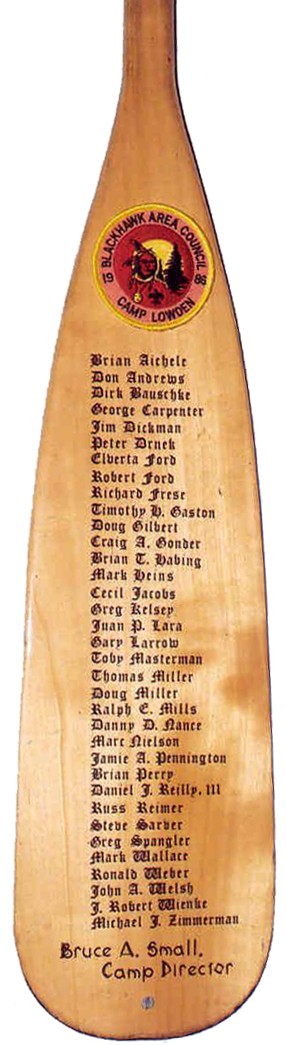 BLACKHAWK AREA COUNCIL
19 86
CAMP LOWDEN
Brian Aichele
Don Andrews
Dirk Bauschke
George Carpenter
Jim Dickman
Peter Drnek
Elverta Ford
Robert Ford
Richard Frese
Timothy H. Gaston
Doug Gilbert
Craig A. Gonder
Brian T. Habing
Mark Heins
Cecil Jacobs
Greg Kelsey
Juan P. Lara
Gary Larrow
Toby Masterman
Thomas Miller
Doug Miller
Ralph E. Mills
Danny D. Nance
Marc Nielson
Jamie A. Pennington
Brian Perry
Daniel J. Reilly, III
Russ Reimer
Steve Sarver
Greg Spangler
Mark Wallace
Ronald Weber
John A. Welsh
J. Robert Wienke
Michael J. Zimmerman
Bruce A. Small,
Camp Director